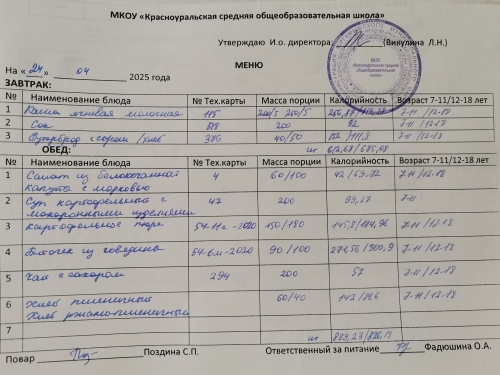 МКОУ «Красноуральская средняя общеобразовательная школа»
Утверждаю И.о. директора: (Викулина Л.Н.)
МКОУ «Красноуральская средняя общеобразовательная школа»
МЕНЮ
На « 24 » 04 2025 года
ЗАВТРАК:
№ Наименование блюда № Тех.карты Масса порции Калорийность Возраст 7-11/12-18 лет
1 Каша молочная 115 200/5 250/5 7-11 /12-18
2 Сок 518 200 92 7-11 /12-18
3 Бутерброд с сыром /хлеб 376 40/50 7-11 / 12-18
ОБЕД:
№ Наименование блюда № Тех.карты Масса порции Калорийность Возраст 7-11/12-18 лет
1 Салат из белокочанной капусты с морковью 4 60/100 7-11 /12-18
2 Суп картофельный с макаронными изделиями 47 200 7-11
3 Картофельное пюре 54-11г-2020 150/180 7-11 / 12-18
4 Биточек из говядины 54-6м-2020 90/100 7-11 / 12-18
5 Чай с сахаром 294 200 57 7-11 / 12-18
6 Хлеб пшеничный Хлеб ржано-пшеничный 60/40 7-11 / 12-18
7
Повар Поздина С.П. Ответственный за питание Фадюшина О.А.